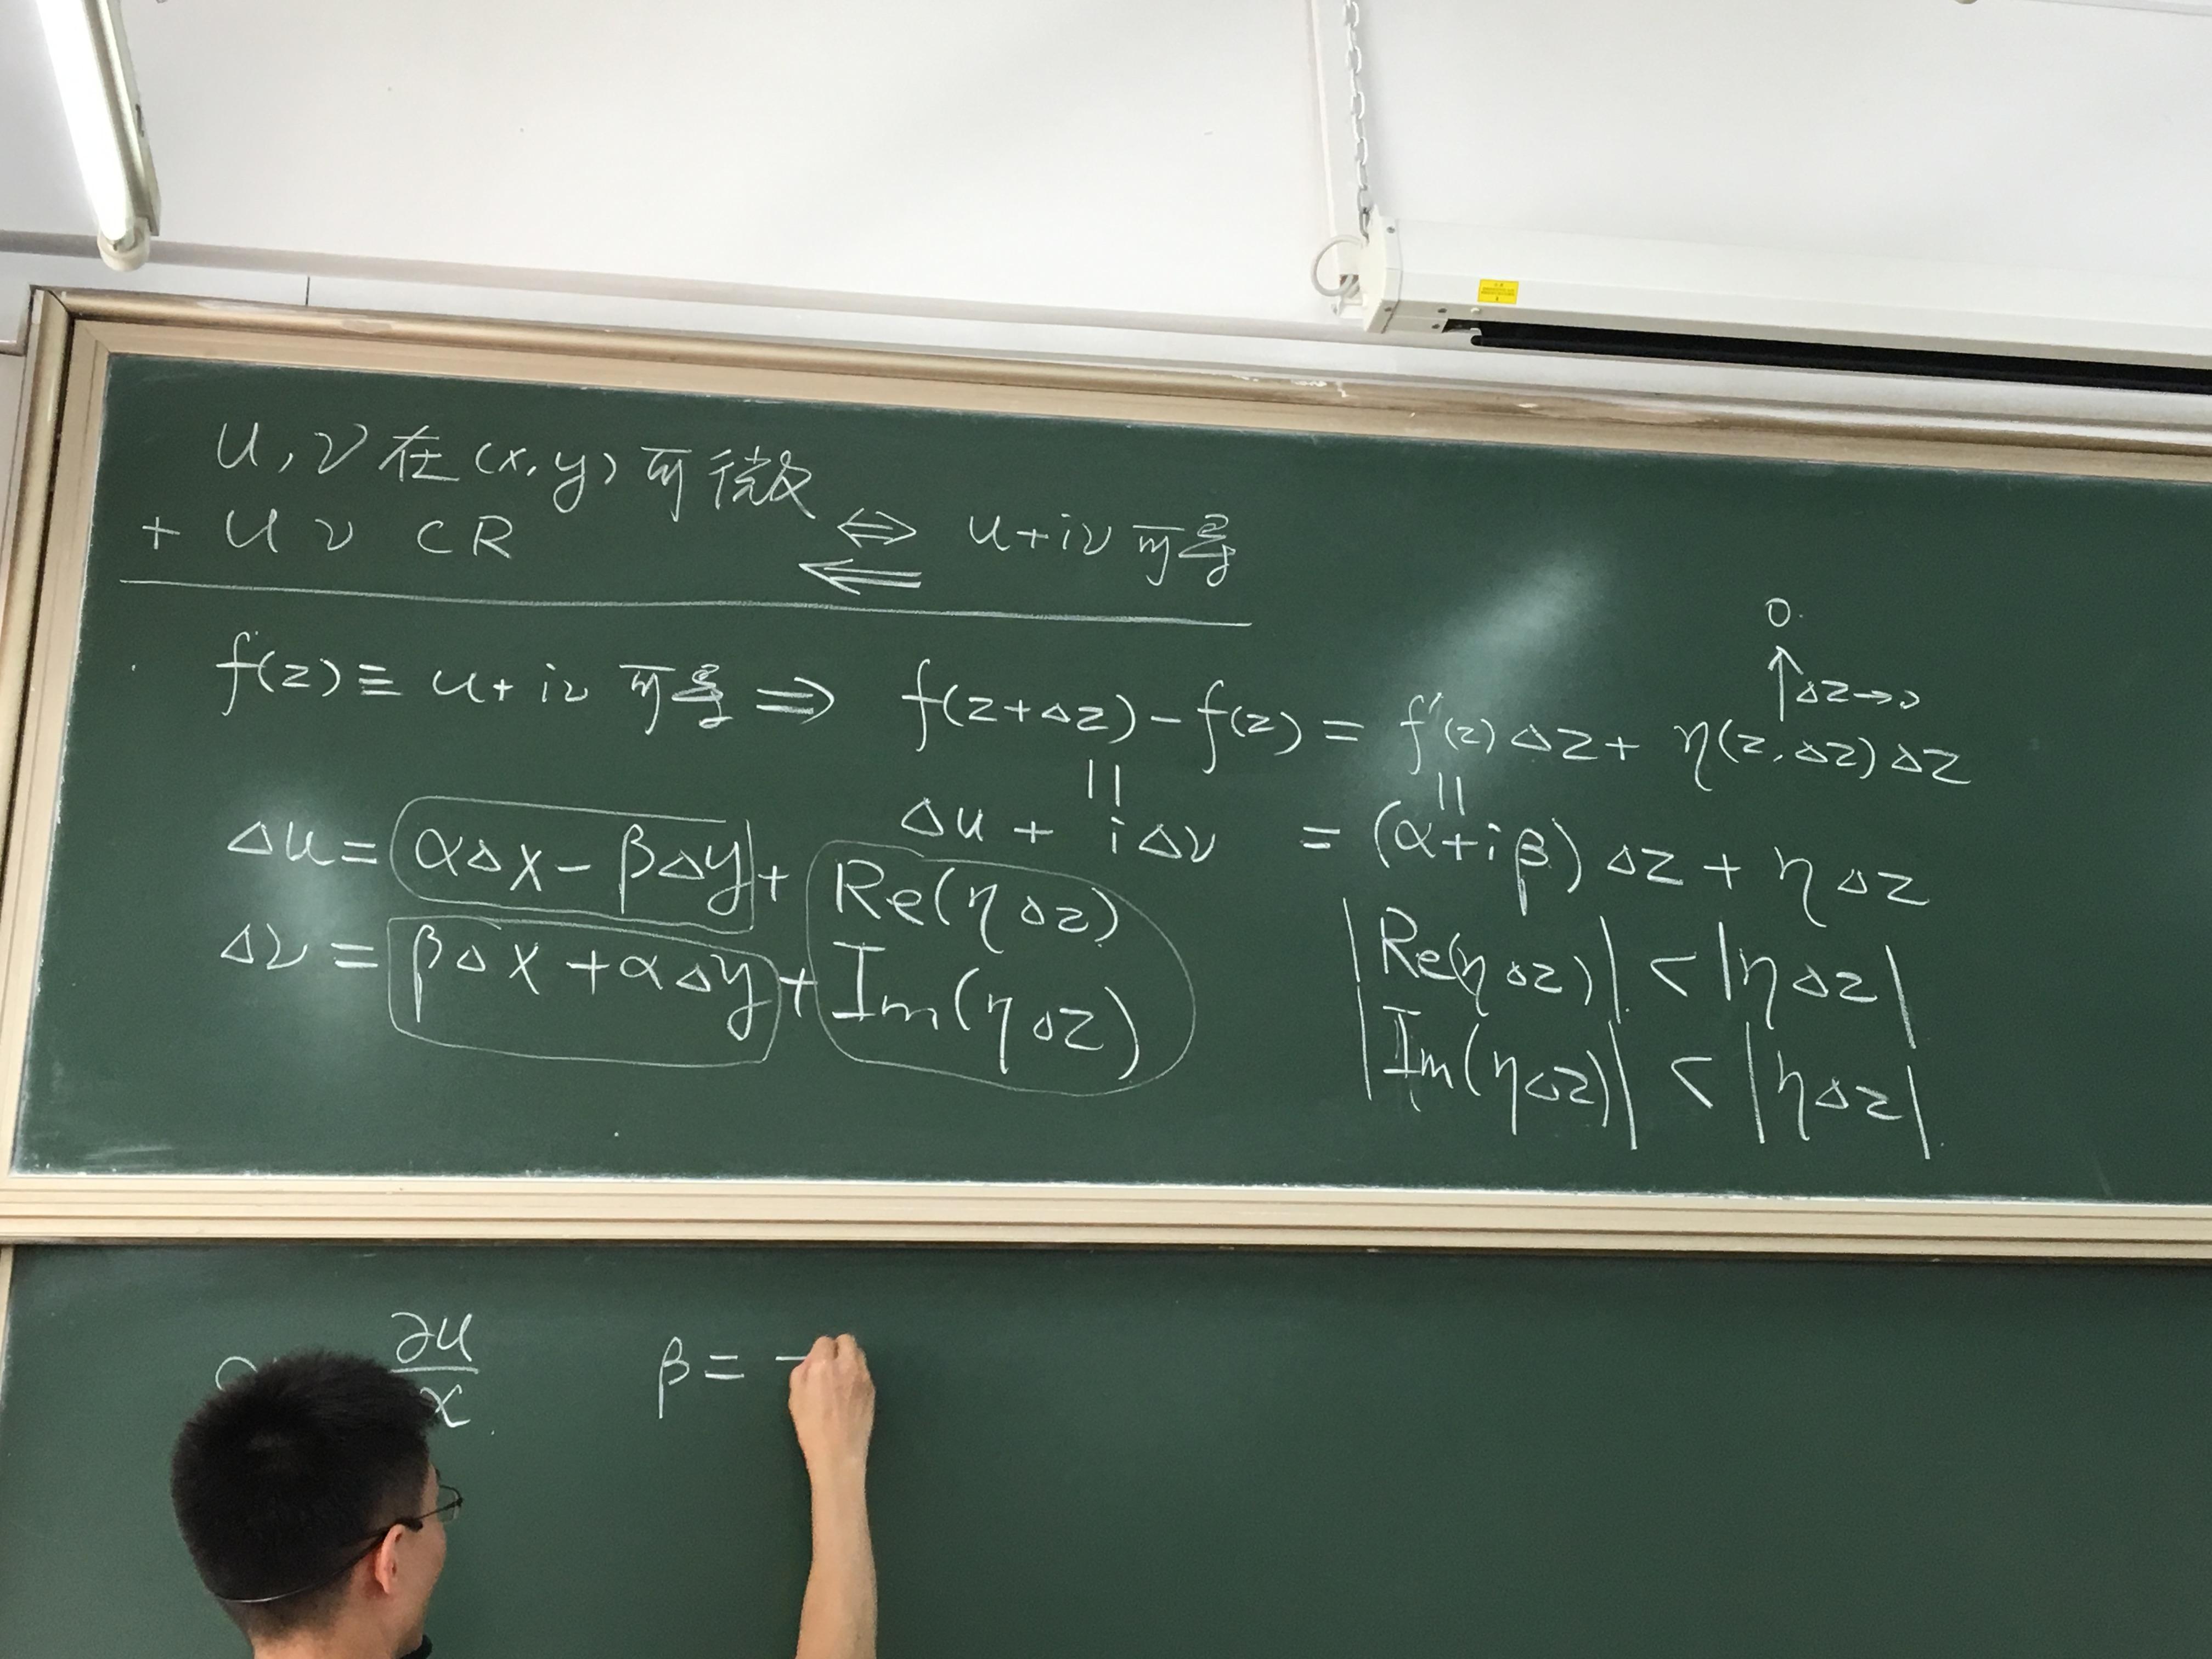 u, v 在 (x, y) 可微
+ u v CR ⇔ u+iv 可导
⇐
0
↑ Δz→0
f(z) ≡ u+iv 可导 ⇒ f(z+Δz) - f(z) = f'(z) Δz + η(z, Δz) Δz
|| ||
Δu + iΔv = (α+iβ) Δz + η Δz
Δu = αΔx - βΔy + Re(η Δz)
Δv = βΔx + αΔy + Im(η Δz)
|Re(η Δz)| < |η Δz|
|Im(η Δz)| < |η Δz|
∂u
x
β = -